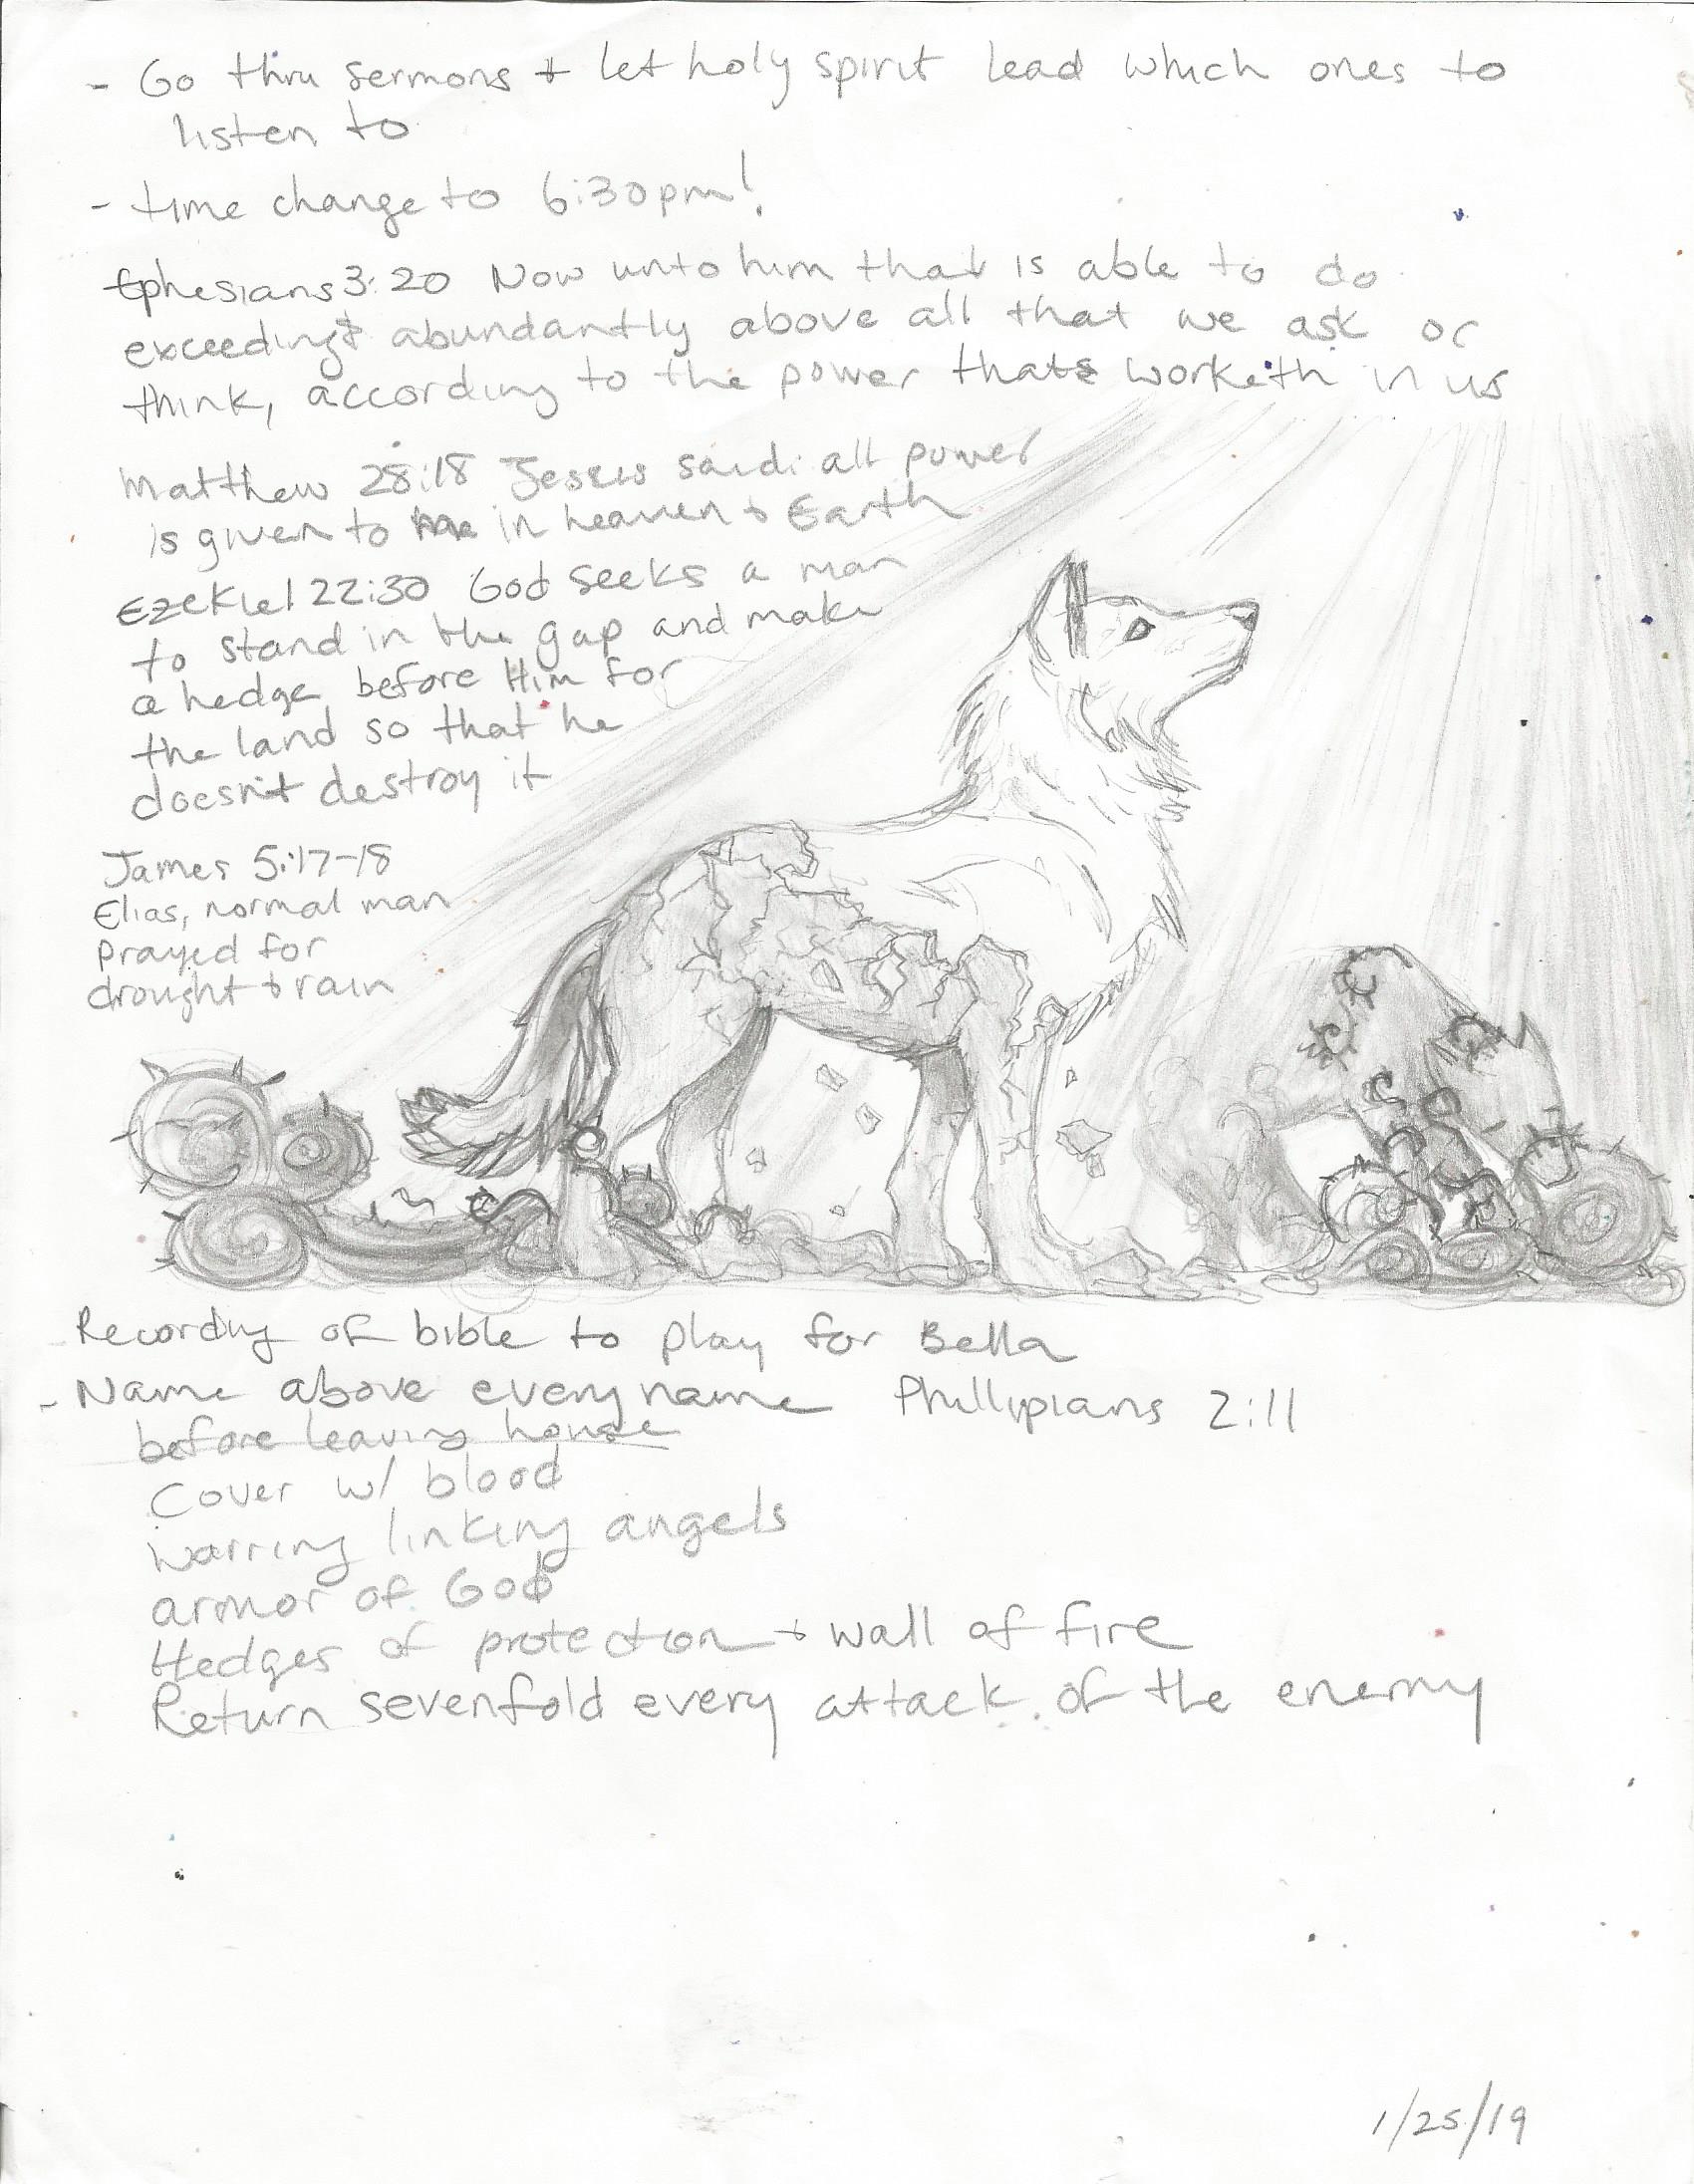 - Go thru sermons + let holy spirit lead which ones to
listen to
- time change to 6:30pm!
Ephesians 3:20 Now unto him that is able to do
exceeding abundantly above all that we ask or
think, according to the power that worketh in us
Matthew 28:18 Jesus said: all power
is given to me in heaven + Earth
Ezekiel 22:30 God seeks a man
to stand in the gap and make
a hedge before Him for
the land so that he
doesn't destroy it
James 5:17-18
Elias, normal man
prayed for
drought + rain
Recording of bible to play for Bella
- Name above every name Phillipians 2:11
before leaving house
Cover w/ blood
warring linking angels
armor of God
Hedges of protection + wall of fire
Return sevenfold every attack of the enemy
1/25/19